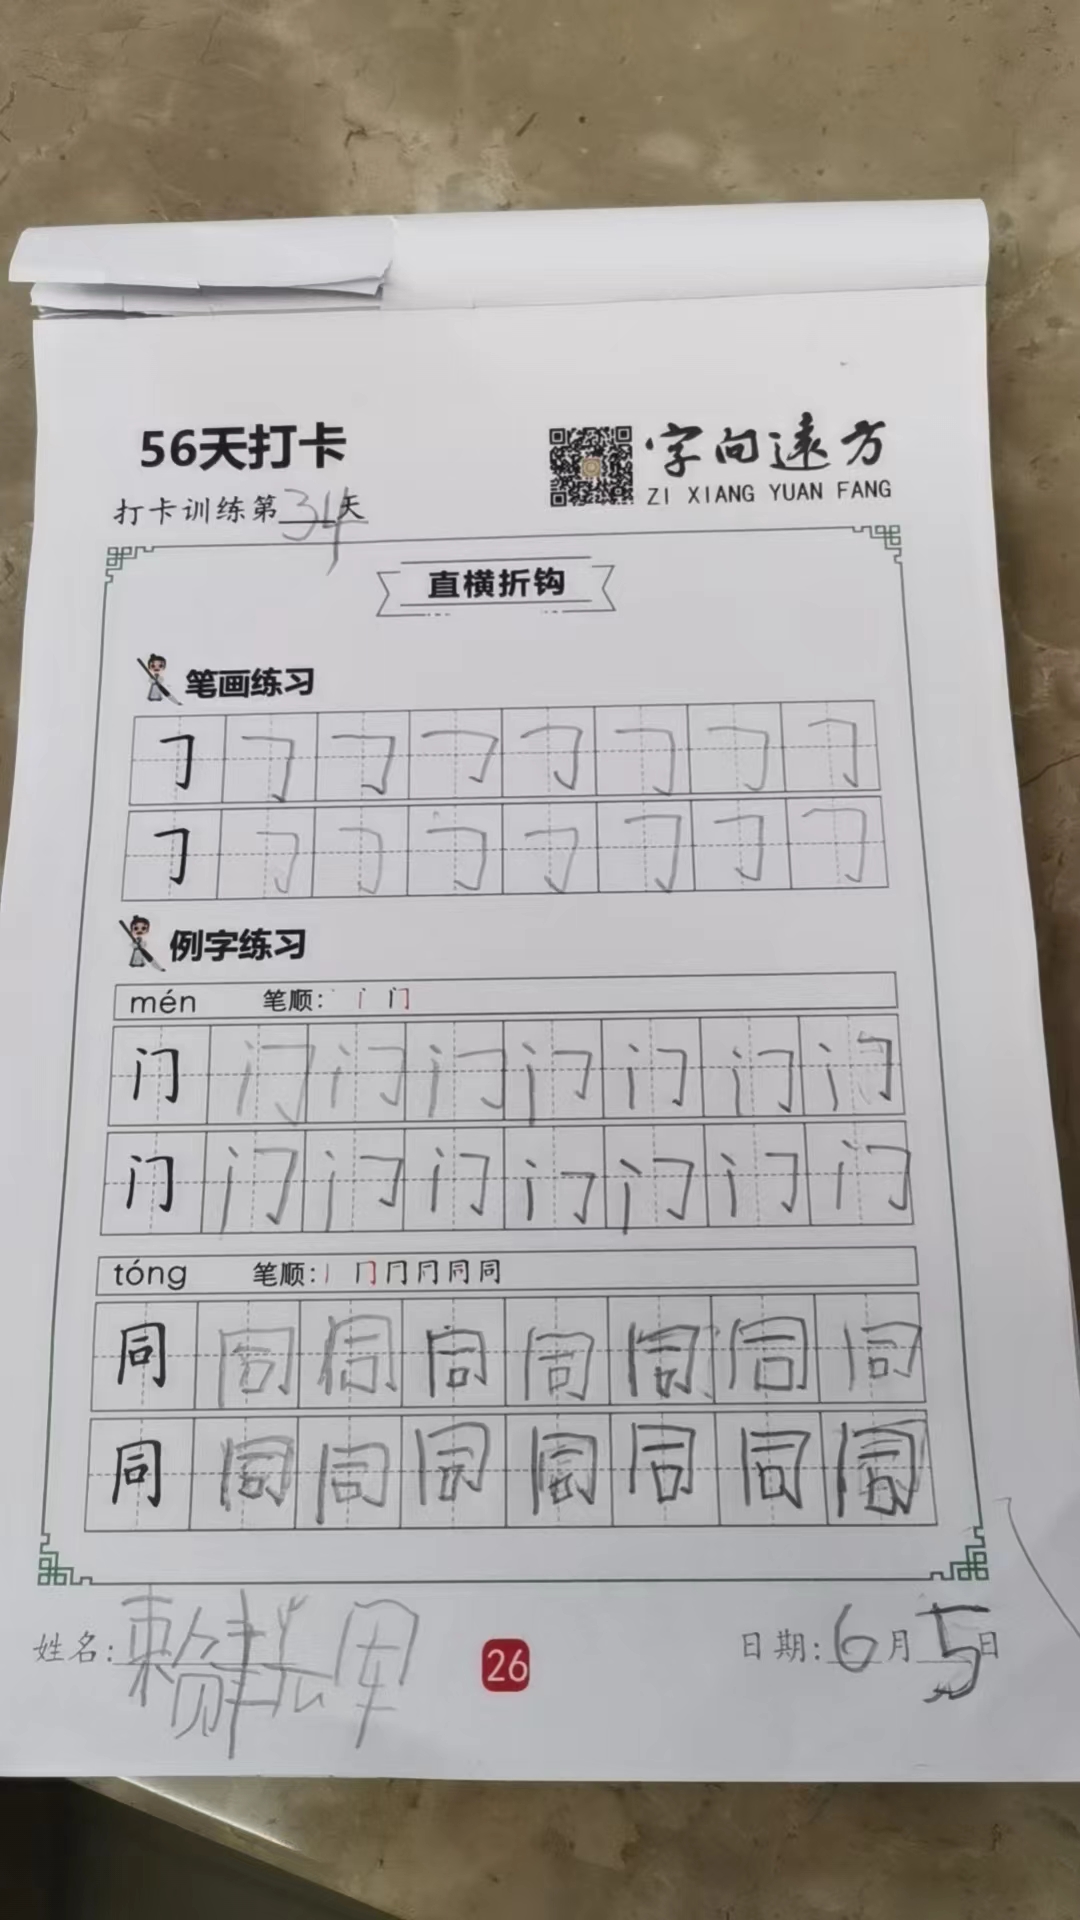 56天打卡
字向远方
ZI XIANG YUAN FANG
打卡训练第34天
直横折钩
笔画练习
𠃌 𠃌 𠃌 𠃌 𠃌 𠃌 𠃌 𠃌
𠃌 𠃌 𠃌 𠃌 𠃌 𠃌 𠃌 𠃌
例字练习
mén 笔顺: 丶 门
门 门 门 门 门 门 门 门
门 门 门 门 门 门 门 门
tóng 笔顺: 丨 冂 同 同
同 同 同 同 同 同 同 同
同 同 同 同 同 同 同 同
姓名: 赖
26
日期: 6月5日